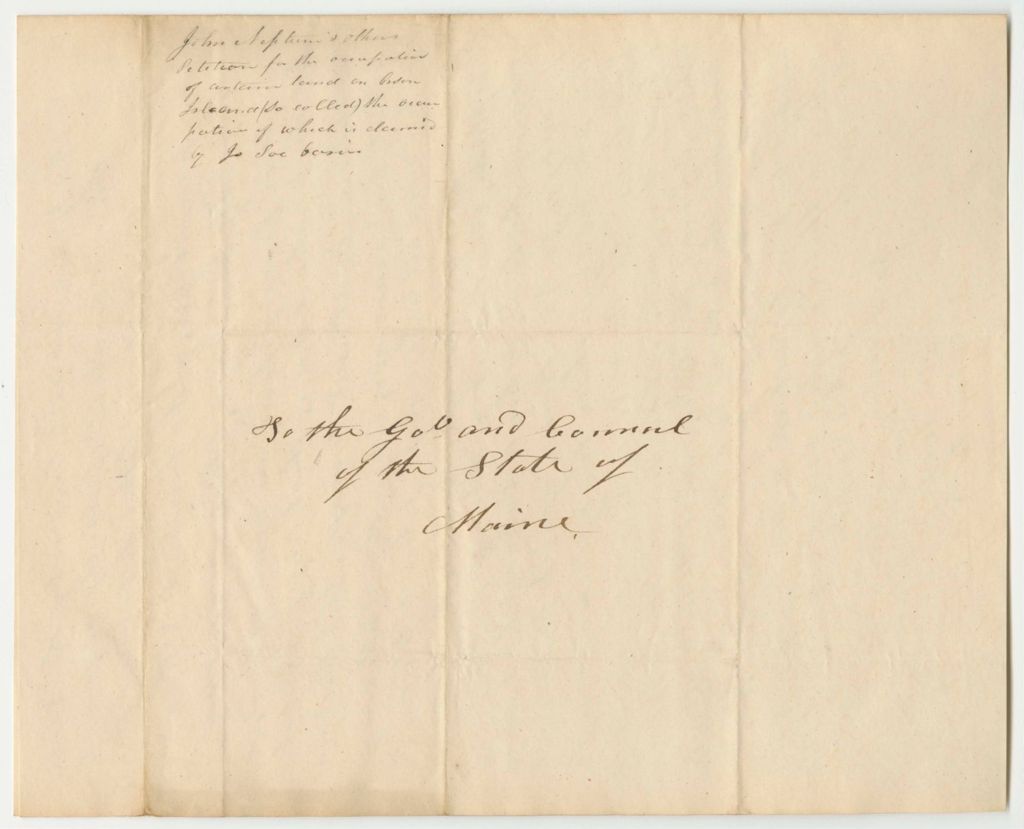 John Neptune & others
Petition for the occupation
of certain land on
Island (so called) the occu-
pation of which is claimed
by Jo Soc basin
To the Gov and Council
of the State of
Maine.